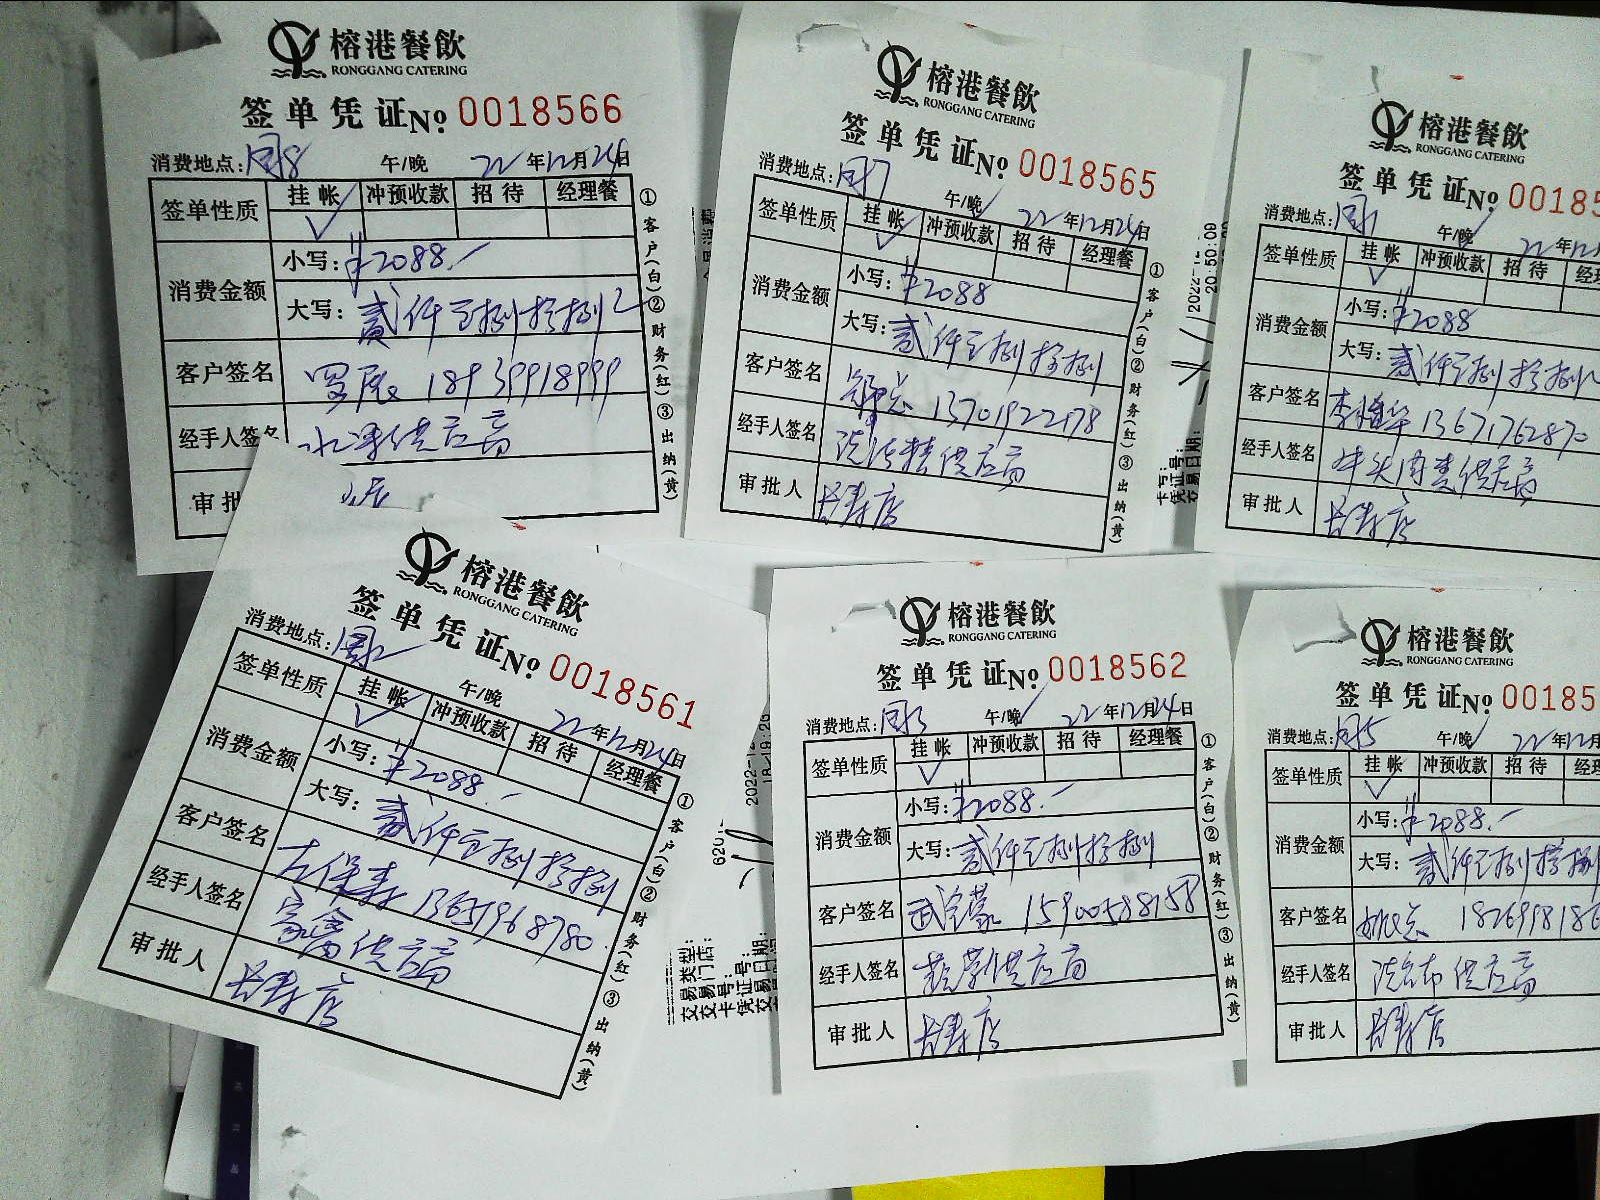 榕港餐飲
RONGGANG CATERING
签单凭证 No. 0018566
消费地点: 周8 午/晚 22年12月24日
签单性质 挂帐 冲预收款 招待 经理餐
√
消费金额 小写: ¥2088.-
大写: 贰仟零捌拾捌
客户签名 18939918999
经手人签名 供应商
审批人 店
①客户(白)②财务(红)③出纳(黄)
榕港餐飲
RONGGANG CATERING
签单凭证 No. 0018565
消费地点: 周7 午/晚 22年12月24日
签单性质 挂帐 冲预收款 招待 经理餐
√
消费金额 小写: ¥2088
大写: 贰仟零捌拾捌
客户签名 郑总 13701922178
经手人签名 供应商
审批人 长寿店
①客户(白)②财务(红)③出纳(黄)
20:50:09
卡号:
凭证号:
交易日期:
榕港餐飲
RONGGANG CATERING
签单凭证 No. 00185
消费地点: 周1 午/晚 22年12
签单性质 挂帐 冲预收款 招待
√
消费金额 小写: ¥2088
大写: 贰仟零捌拾捌
客户签名 13671762870
经手人签名 牛头肉类供应商
审批人 长寿店
榕港餐飲
RONGGANG CATERING
签单凭证 No. 0018561
消费地点: 周2 午/晚 22年12月24日
签单性质 挂帐 冲预收款 招待 经理餐
√
消费金额 小写: ¥2088.-
大写: 贰仟零捌拾捌
客户签名 左保寿 13651968780
经手人签名 家禽供应商
审批人 长寿店
①客户(白)②财务(红)③出纳(黄)
交易类型:
交易门店:
卡号:
凭证号:
交易日期:
榕港餐飲
RONGGANG CATERING
签单凭证 No. 0018562
消费地点: 周3 午/晚 22年12月24日
签单性质 挂帐 冲预收款 招待 经理餐
√
消费金额 小写: ¥2088.-
大写: 贰仟零捌拾捌
客户签名 15900588158
经手人签名 供应商
审批人 长寿店
①客户(白)②财务(红)③出纳(黄)
榕港餐飲
RONGGANG CATERING
签单凭证 No. 00185
消费地点: 周5 午/晚 22年12月
签单性质 挂帐 冲预收款 招待
√
消费金额 小写: ¥2088.-
大写: 贰仟零捌拾捌
客户签名 姚总 1826998186
经手人签名 供应商
审批人 长寿店